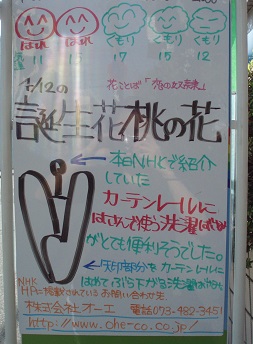 はれ はれ くもり くもり くもり
11 15 17 15 12
4/12の
花ことば「
誕生花桃の花
←本日NHKで紹介
していた
カーテンレールに
はさんで使う洗濯ばさみ
がとても便利そうでした。
←矢印部分をカーテンレールに
はめてぶら下がる洗濯ばさみ
NHK
HPに掲載されているお問い合わせ先
株式会社オーエ 073-482-3451
http://www.ohe-co.co.jp/